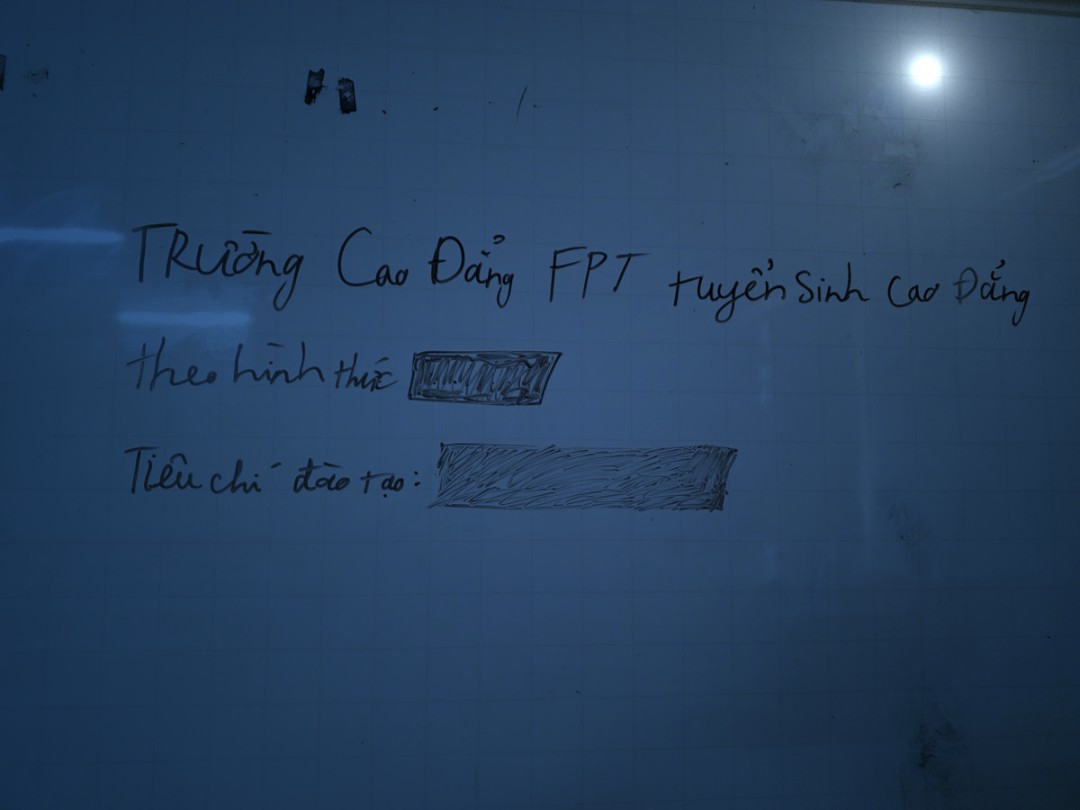 TRường Cao Đẳng FPT tuyển Sinh Cao Đẳng
theo hình thức
Tiêu chí đào tạo: